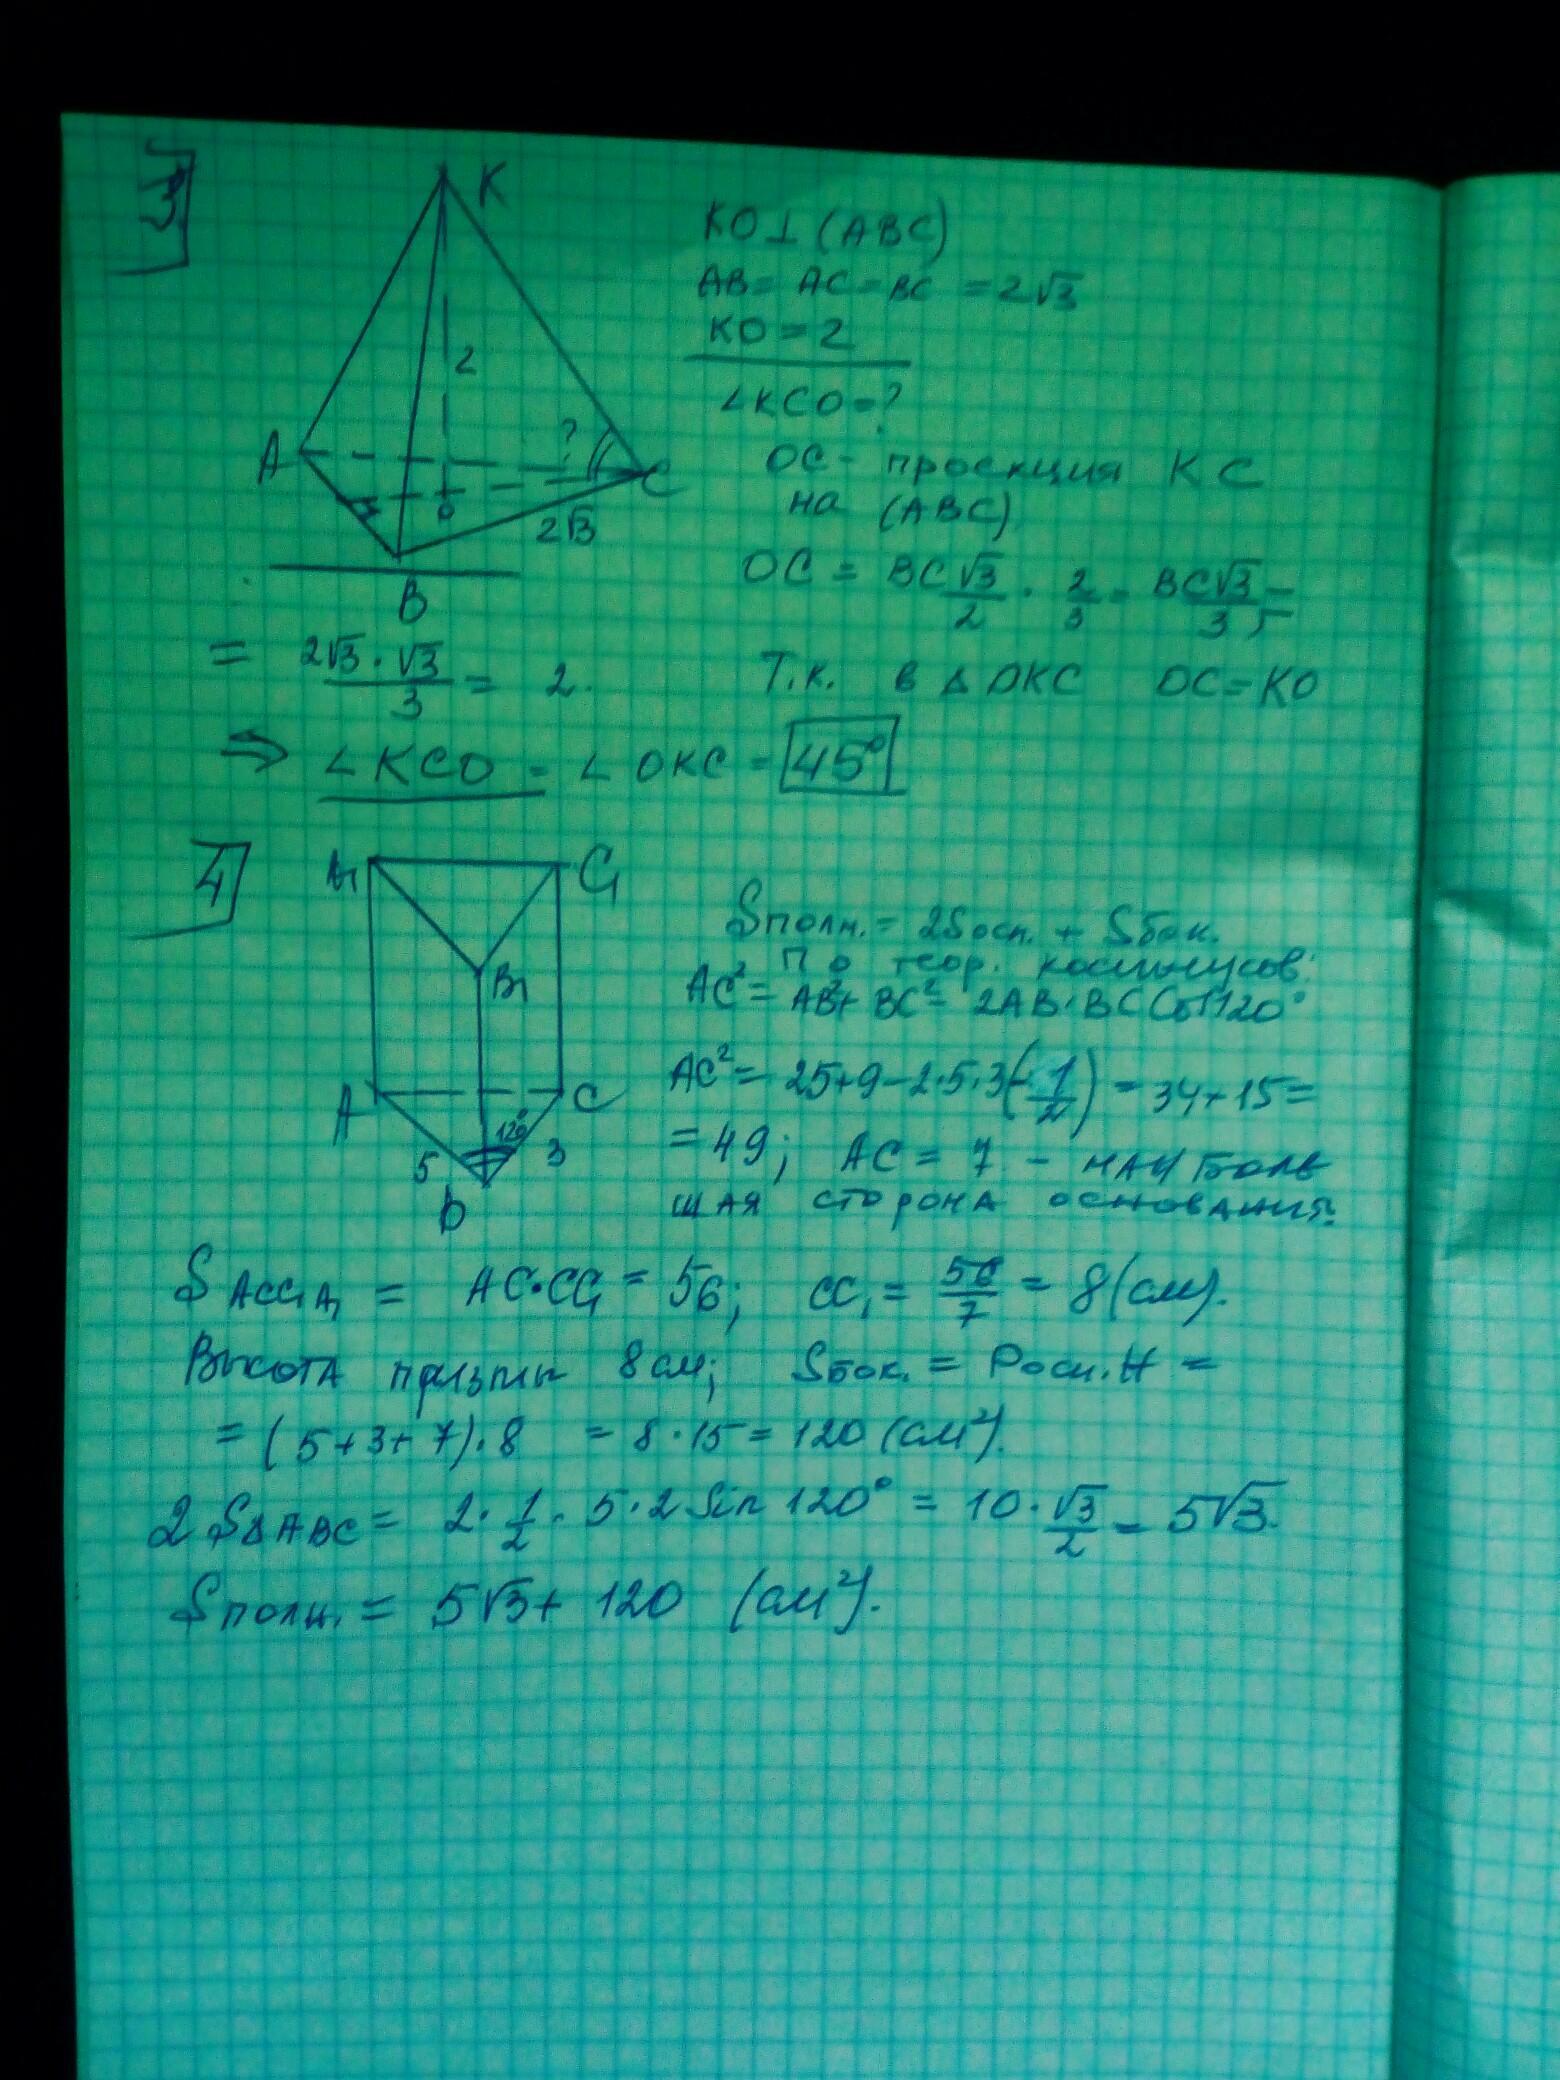 3
K
A
B
C
O
2
?
2√3
KO⊥(ABC)
AB = AC = BC = 2√3
KO = 2
∠KCO = ?
OC - проекция KC
на (ABC)
OC = BC√3/2 · 2/3 = BC√3/3 =
= 2√3·√3/3 = 2. Т.к. в △OKC OC = KO
⇒ ∠KCO = ∠OKC = 45°
4
A₁
C₁
B₁
A
C
120°
5
3
B
Sполн. = 2Sосн. + Sбок.
По теор. косинусов:
AC² = AB² + BC² - 2AB·BC Cos120°
AC² = 25+9-2·5·3(-1/2) = 34+15 =
= 49; AC = 7 - наиболь
шая сторона основания.
S ACC₁A₁ = AC·CC₁ = 56; CC₁ = 56/7 = 8 (см).
Высота призмы 8см; Sбок. = Pосн.H =
= (5+3+7)·8 = 8·15 = 120 (см²).
2 S△ABC = 2·1/2·5·2 Sin 120° = 10·√3/2 = 5√3.
Sполн. = 5√3 + 120 (см²).